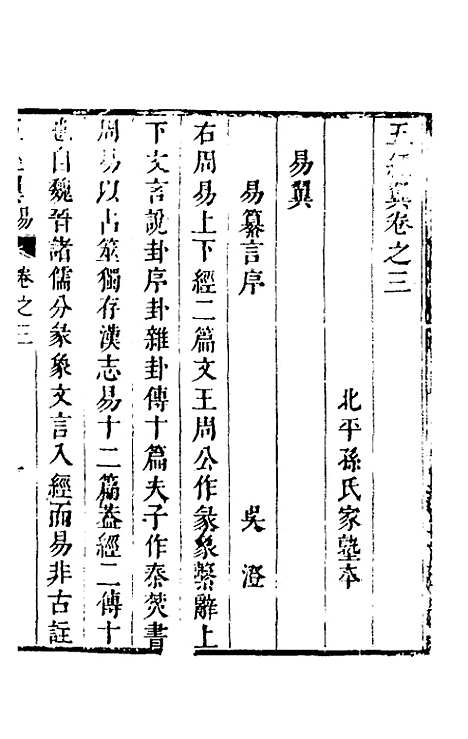 五經翼卷之三
北平孫氏家塾本
易翼
易纂言序 吳澄
右周易上下經二篇文王周公作彖象繫辭上
下文言說卦序卦雜卦傳十篇夫子作秦焚書
周易以占筮獨存漢志易十二篇葢經二傳十
也自魏晉諸儒分彖象文言入經而易非古註
五經翼易 卷之三 一